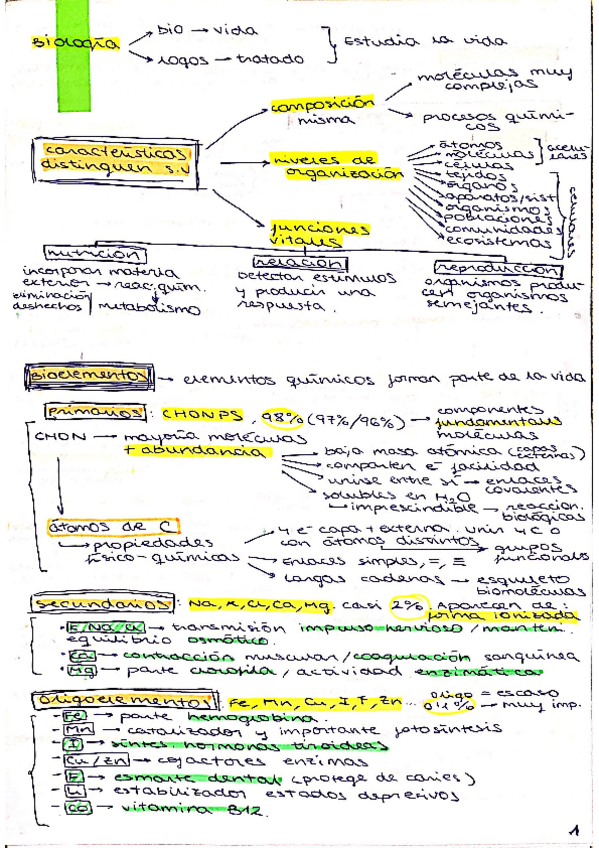 Biología → bio → vida
→ logos → tratado
Estudia la vida
características distinguen s.v
composición misma
→ moléculas muy complejas
→ procesos químicos
niveles de organización
átomos
moléculas
acelulares
células
tejidos
órganos
aparatos/sist
organismos
poblaciones
comunidades
ecosistemas
celulares
funciones vitales
nutrición
incorporar materia
exterior → reac. quím.
eliminación
deshechos
metabolismo
relación
Detectar estímulos
y producir una
respuesta.
reproducción
organismos produ-
cen organismos
semejantes.
Bioelementos → elementos químicos forman parte de la vida
primarios: CHONPS, 98% (97%/96%) → componentes
fundamentales
moléculas
CHON → mayoría moléculas
+ abundancia
→ baja masa atómica (capas externas)
→ comparten e⁻ facilidad
→ unirse entre sí → enlaces covalentes
→ solubles en H2O
→ imprescindible → reaccion. biológicas
átomos de C
→ propiedades
físico-químicas
→ 4 e⁻ capa + externa. Unir 4 C o
con átomos distintos → grupos funcionales
→ Enlaces simples, =, ≡
→ Largas cadenas → esqueleto
biomoléculas
secundarios: Na, K, Cl, Ca, Mg. casi 2%. Aparecen de:
forma ionizada
· K/Na/Cl → transmisión impulso nervioso/manten.
equilibrio osmótico.
· Ca → contracción muscular/coagulación sanguínea
· Mg → parte clorofila/actividad enzimática
Oligoelementos: Fe, Mn, Cu, I, F, Zn... oligo = escaso
0'1% → muy imp.
- Fe → parte hemoglobina.
- Mn → catalizador y importante fotosíntesis
- I → síntes. hormonas tiroideas
- Cu/Zn → cofactores enzimas
- F → esmalte dental (protege de caries)
- Li → estabilizador estados depresivos
- Co → vitamina B12.
1